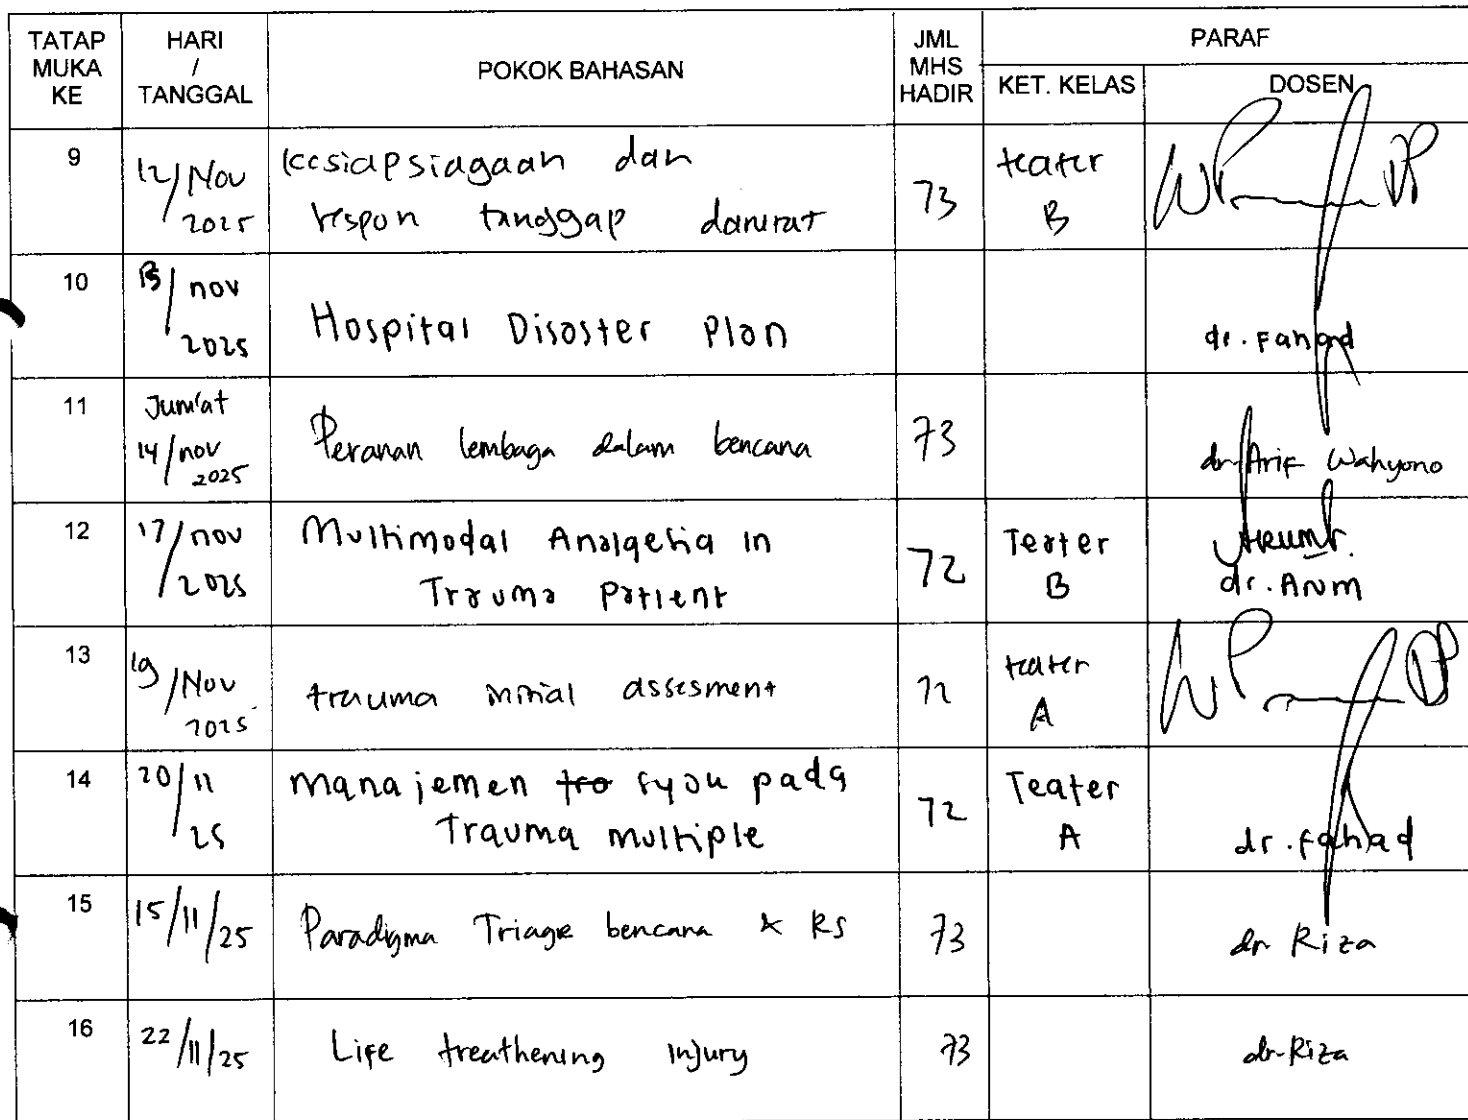 TATAP MUKA KE
HARI / TANGGAL
POKOK BAHASAN
JML MHS HADIR
PARAF
KET. KELAS
DOSEN
9
12/Nov 2025
kesiapsiagaan dan
respon tanggap darurat
73
teater
B
10
13/nov 2025
Hospital Disaster Plan
dr. Fahad
11
Jum'at
14/nov 2025
Peranan lembaga dalam bencana
73
dr Arif Wahyono
12
17/nov 2025
Multimodal Analgesia in
Trauma Patient
72
Teater
B
dr. Arum
13
19/Nov 2025
trauma initial assesment
72
teater
A
14
20/11 25
manajemen syok pada
Trauma multiple
72
Teater
A
dr. fahad
15
15/11/25
Paradigma Triage bencana & RS
73
dr Riza
16
22/11/25
Life treathening Injury
73
dr Riza